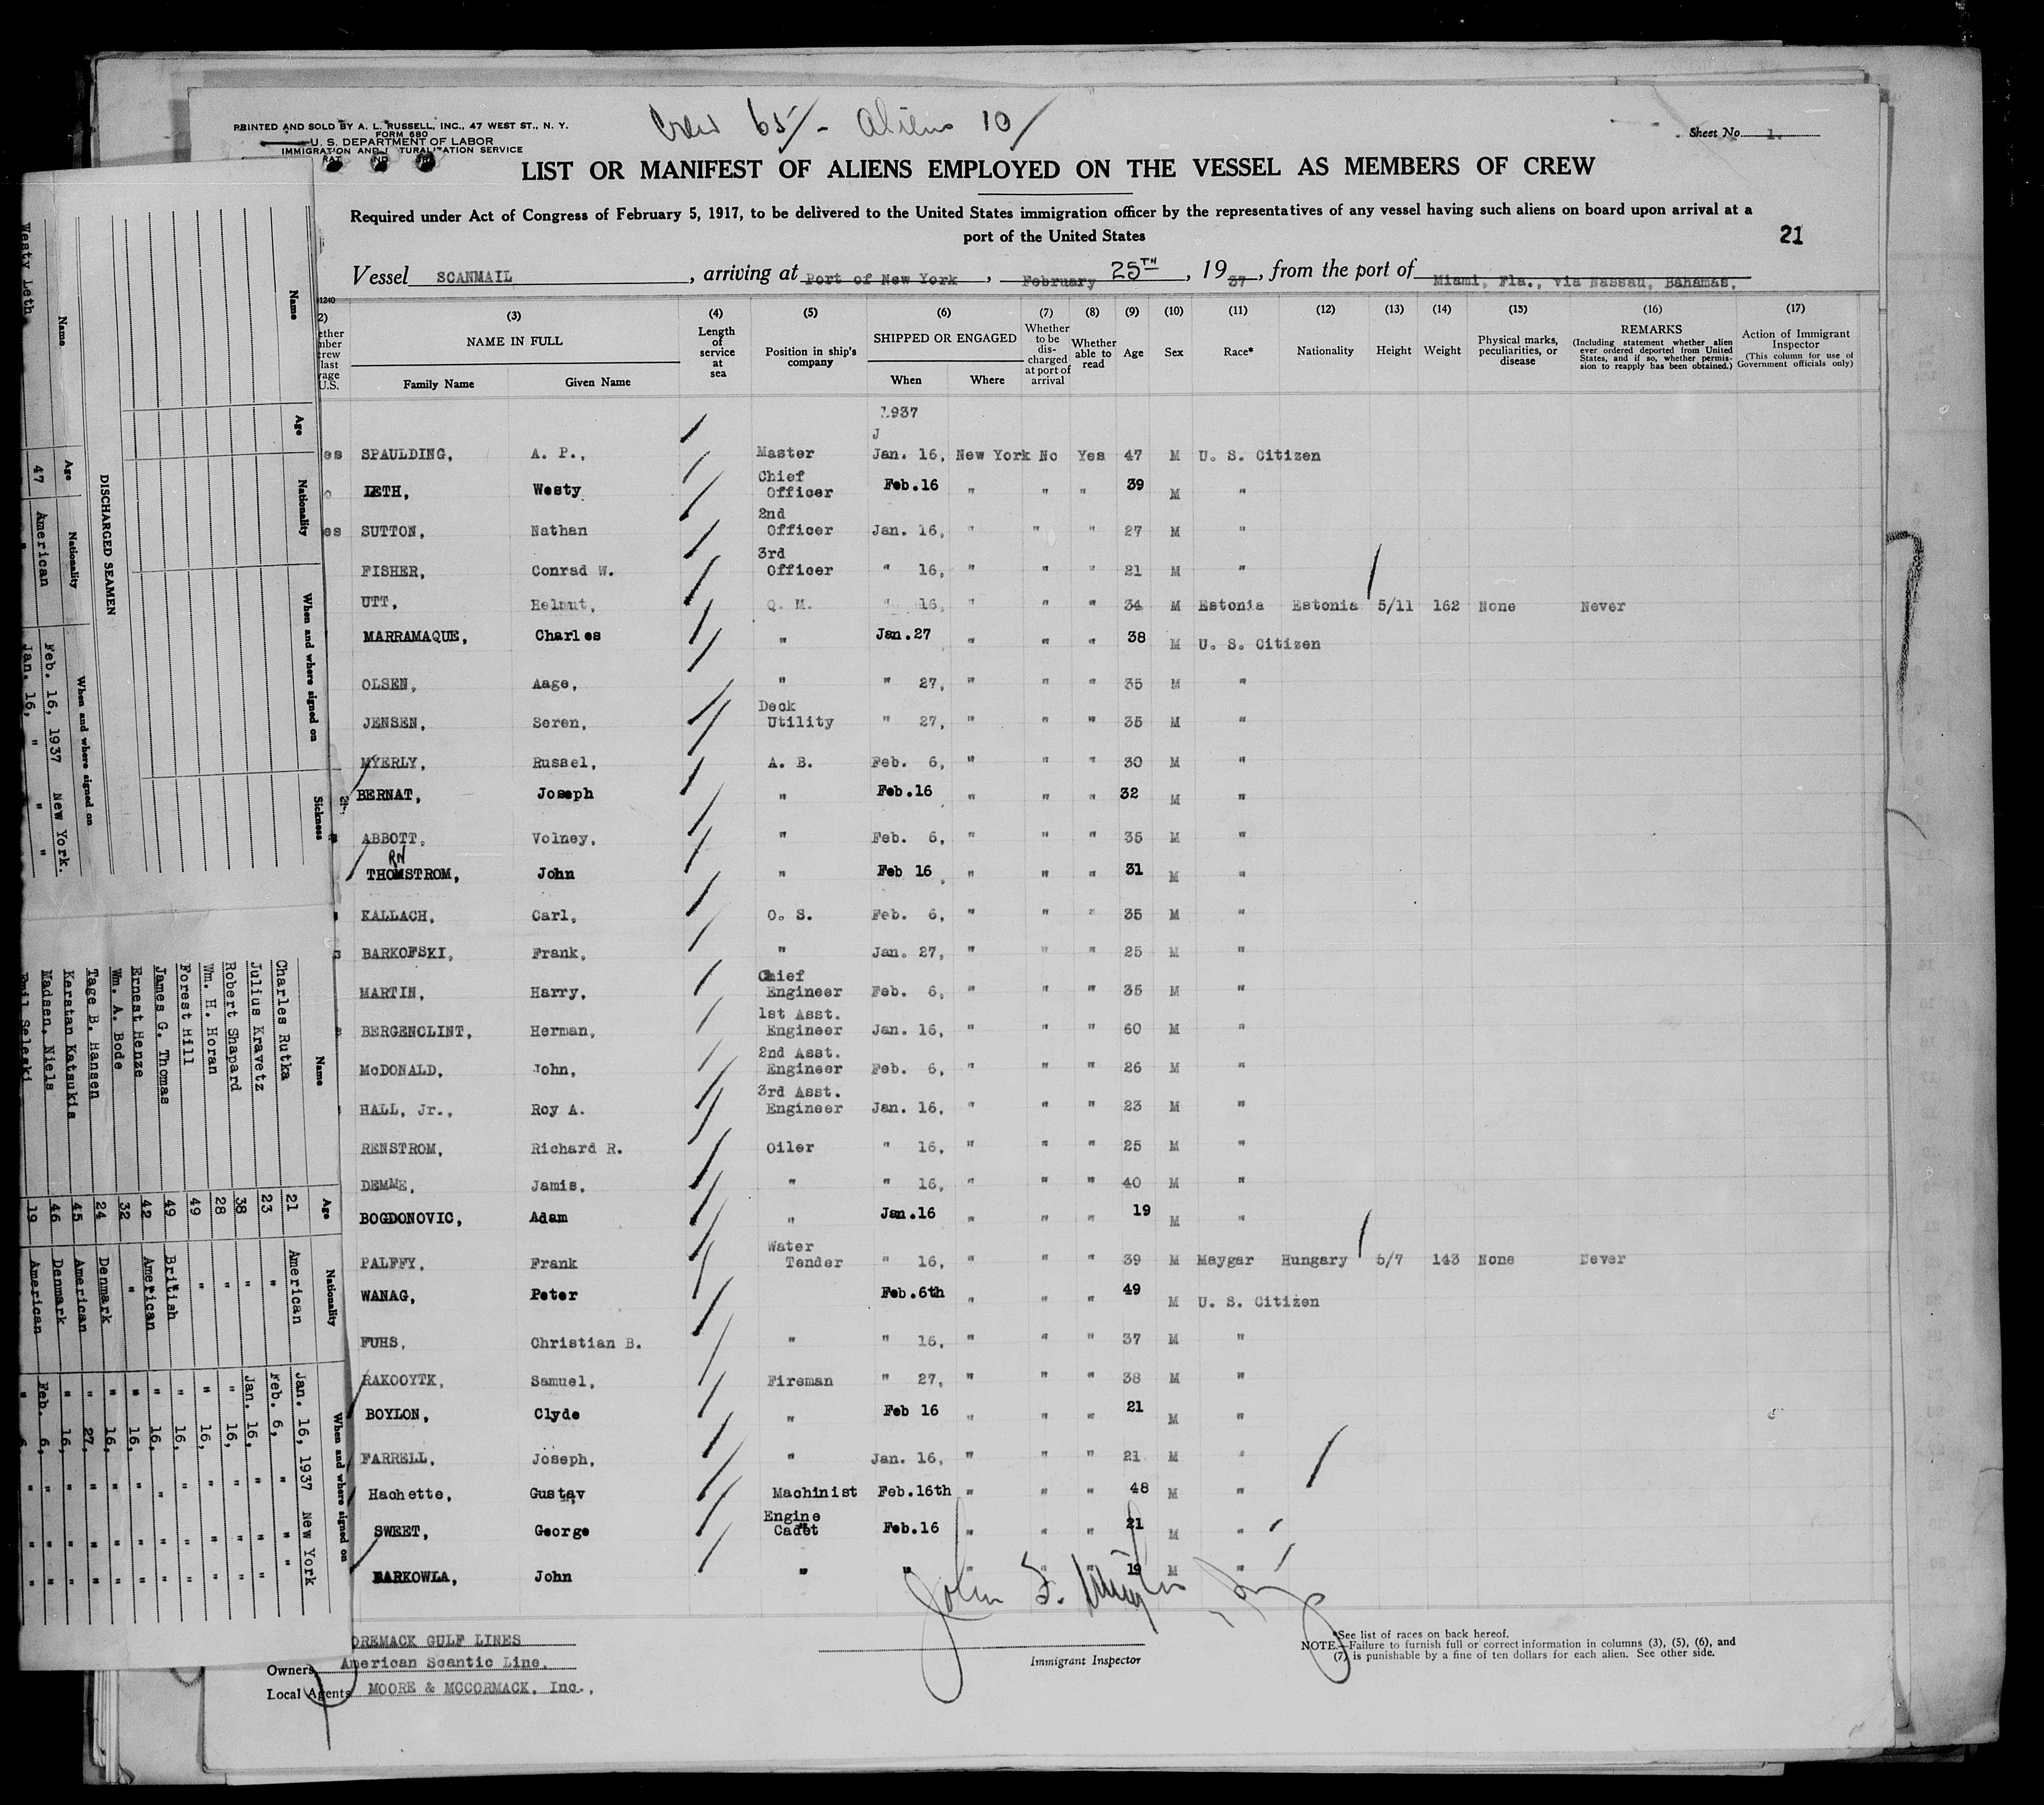 Crew 65 - Aliens 10
PRINTED AND SOLD BY A. L. RUSSELL, INC., 47 WEST ST., N. Y.
FORM 680
U. S. DEPARTMENT OF LABOR
IMMIGRATION AND NATURALIZATION SERVICE
Sheet No. 1.
LIST OR MANIFEST OF ALIENS EMPLOYED ON THE VESSEL AS MEMBERS OF CREW
Required under Act of Congress of February 5, 1917, to be delivered to the United States immigration officer by the representatives of any vessel having such aliens on board upon arrival at a
port of the United States
21
Vessel SCANMAIL, arriving at Port of New York, February 25TH, 1937, from the port of Miami, Fla., via Nassau, Bahamas,
(3) NAME IN FULL Family Name Given Name
(4) Length of service at sea
(5) Position in ship's company
(6) SHIPPED OR ENGAGED When Where
(7) Whether to be discharged at port of arrival
(8) Whether able to read
(9) Age
(10) Sex
(11) Race*
(12) Nationality
(13) Height
(14) Weight
(15) Physical marks, peculiarities, or disease
(16) REMARKS (Including statement whether alien ever ordered deported from United States, and if so, whether permission to reapply has been obtained.)
(17) Action of Immigrant Inspector (This column for use of Government officials only)
1937
J
es SPAULDING, A. P., Master Jan. 16, New York No Yes 47 M U. S. Citizen
o LETH, Westy Chief Officer Feb.16 " " " 39 M "
es SUTTON, Nathan 2nd Officer Jan. 16, " " " 27 M "
FISHER, Conrad W. 3rd Officer " 16, " " " 21 M "
UTT, Helmut, Q. M. " 16, " " " 34 M Estonia Estonia 5/11 162 None Never
MARRAMAQUE, Charles " Jan.27 " " " 38 M U. S. Citizen
OLSEN, Aage, " " 27, " " " 35 M "
JENSEN, Soren, Deck Utility " 27, " " " 35 M "
MYERLY, Russel, A. B. Feb. 6, " " " 30 M "
BERNAT, Joseph " Feb.16 " " " 32 M "
ABBOTT, Volney, " Feb. 6, " " " 35 M "
RN
THOMSTROM, John " Feb 16 " " " 31 M "
KALLACH, Carl, O. S. Feb. 6, " " " 35 M "
BARKOFSKI, Frank, " Jan. 27, " " " 25 M "
MARTIN, Harry, Chief Engineer Feb. 6, " " " 35 M "
BERGENCLINT, Herman, 1st Asst. Engineer Jan. 16, " " " 60 M "
McDONALD, John, 2nd Asst. Engineer Feb. 6, " " " 26 M "
HALL, Jr., Roy A. 3rd Asst. Engineer Jan. 16, " " " 23 M "
RENSTROM, Richard R. Oiler " 16, " " " 25 M "
DEMME, Jamis, " " 16, " " " 40 M "
BOGDONOVIC, Adam " Jan.16 " " " 19 M "
PALFFY, Frank Water Tender " 16, " " " 39 M Maygar Hungary 5/7 143 None Never
WANAG, Peter Feb.6th " " " 49 M U. S. Citizen
FUHS, Christian B. " " 16, " " " 37 M "
RAKOOYTK, Samuel, Fireman " 27, " " " 38 M "
BOYLON, Clyde " Feb 16 " " " 21 M "
FARRELL, Joseph, " Jan. 16, " " " 21 M "
Hachette, Gustav Machinist Feb.16th " " " 48 M "
SWEET, George Engine Cadet Feb.16 " " " 21 M "
BARKOWLA, John " " " " " 19 M "
OREMACK GULF LINES
Owners American Scantic Line,
Local Agents MOORE & MCCORMACK, Inc.,
Immigrant Inspector
*See list of races on back hereof.
NOTE.—Failure to furnish full or correct information in columns (3), (5), (6), and
(7) is punishable by a fine of ten dollars for each alien. See other side.
DISCHARGED SEAMEN
Name Age Nationality When and where signed on Sickness
Name Age Nationality When and where signed on
Westy Leth 47 American Feb. 16, 1937 New York.
" Jan. 16, " "
Name Age Nationality When and where signed on
Charles Rutka 21 American Jan. 16, 1937 New York
Julius Kravetz 23 " Feb. 6, " "
Robert Shapard 38 " Jan. 16, " "
Wm. H. Horan 28 " " 16, " "
Forest Hill 49 " " 16, " "
James G. Thomas 49 British " 16, " "
Ernest Henze 42 American " 16, " "
Wm. A. Bode 32 " " 16, " "
Tage B. Hansen 24 Denmark " 16, " "
Kerstan Katsukis 45 American " 27, " "
Madsen, Niels 46 Denmark " 16, " "
Emil Seleski 19 American Feb. 6, " "